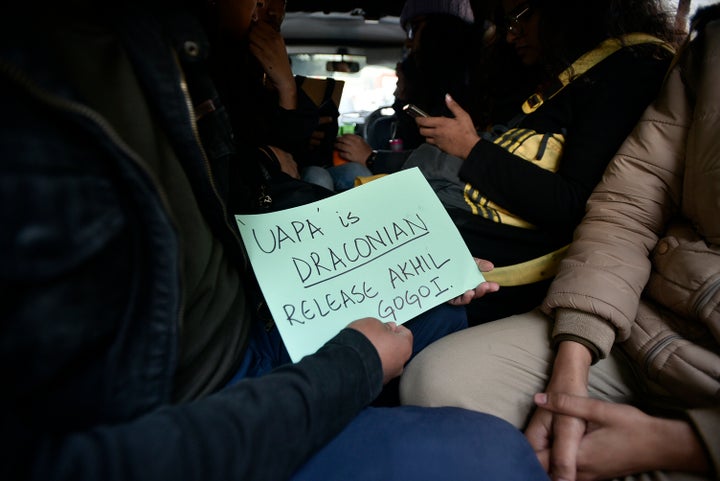 'UAPA' is
DRACONIAN
RELEASE AKHIL
GOGOI.